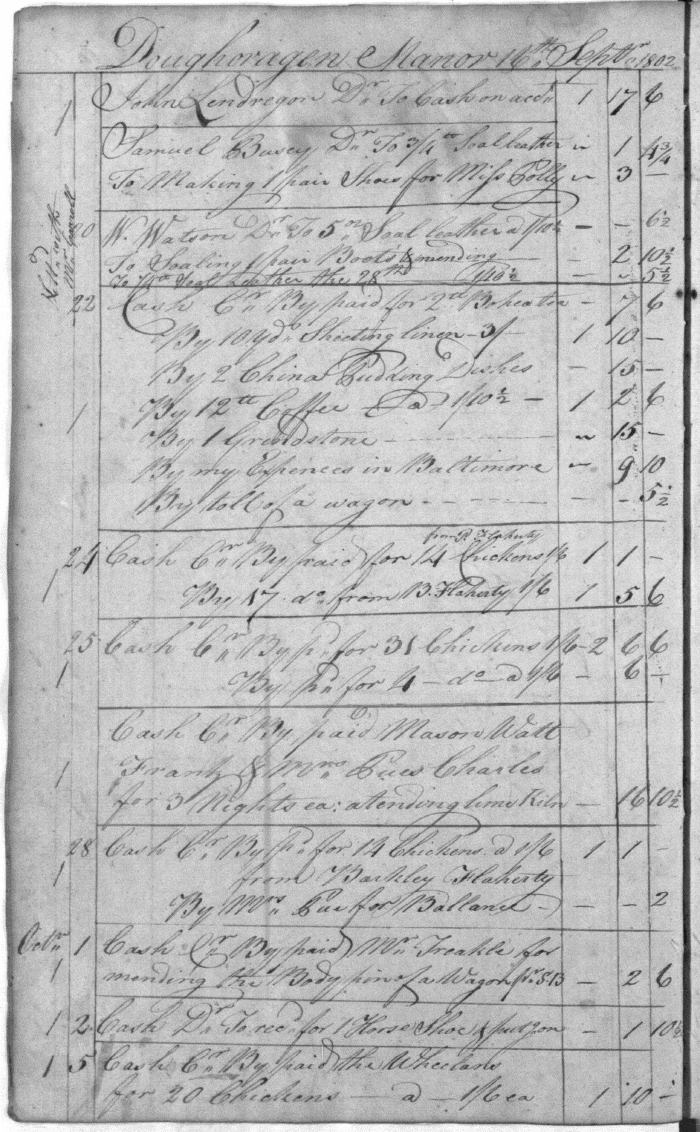 Doughoragen Manor 16th Septbr 1802
1 John Lendregon Dr To Cash on accot 1 17 6
Samuel Busey Dr To 3/4 tt Soal leather ~ 1 4 3/4
To Making 1 pair Shoes for Miss Polly ~ 3 —
20 W. Watson Dr To 5 oz Soal leather a 1/10½ — — 6½
To Soaling 1 pair Boots & mending — — 2 10½
To 1/4 tt Soal Leather the 28th 1/10½ — ~ 5½
22 Cash Cr By paid for 2 tt Bohea tea — 7 6
By 10 Yds Sheeting linen — 3/— 1 10 —
By 2 China Pudding Dishes — 15 —
1 By 12 tt Coffee — a — 1/10½ — 1 2 6
By 1 Grindstone — ~ 15 —
By my Expences in Baltimore ~ 9 10
By toll of a wagon — — — 5½
from R. Flaherty
24 Cash Cr By paid for 14 Chickens 1/6 1 1 —
1 By 17 do from B. Flaherty 1/6 1 5 6
25 Cash Cr By pd for 31 Chickens 1/6 — 2 6 6
1 By pd for 4 — do — a 1/6 — 6 —
Cash Cr By paid Mason Watt
1 Frank & Mrs Pues Charles
for 3 Nights ea: atending lime Kiln — 16 10½
28 Cash Cr By pd for 14 Chickens a 1/6 1 1 —
1 from Barkley Flaherty
By Mrs Pue for Ballance — — — 2
Octbr 1 Cash Cr By paid Mr Treakle for
1 mending the Body pin of a Wagon — 2 6
1 2 Cash Dr To recd for 1 Horse Shoe — 1 10½
1 5 Cash Cr By paid the Wheelans
for 20 Chickens — a — 1/6 ea 1 10 —